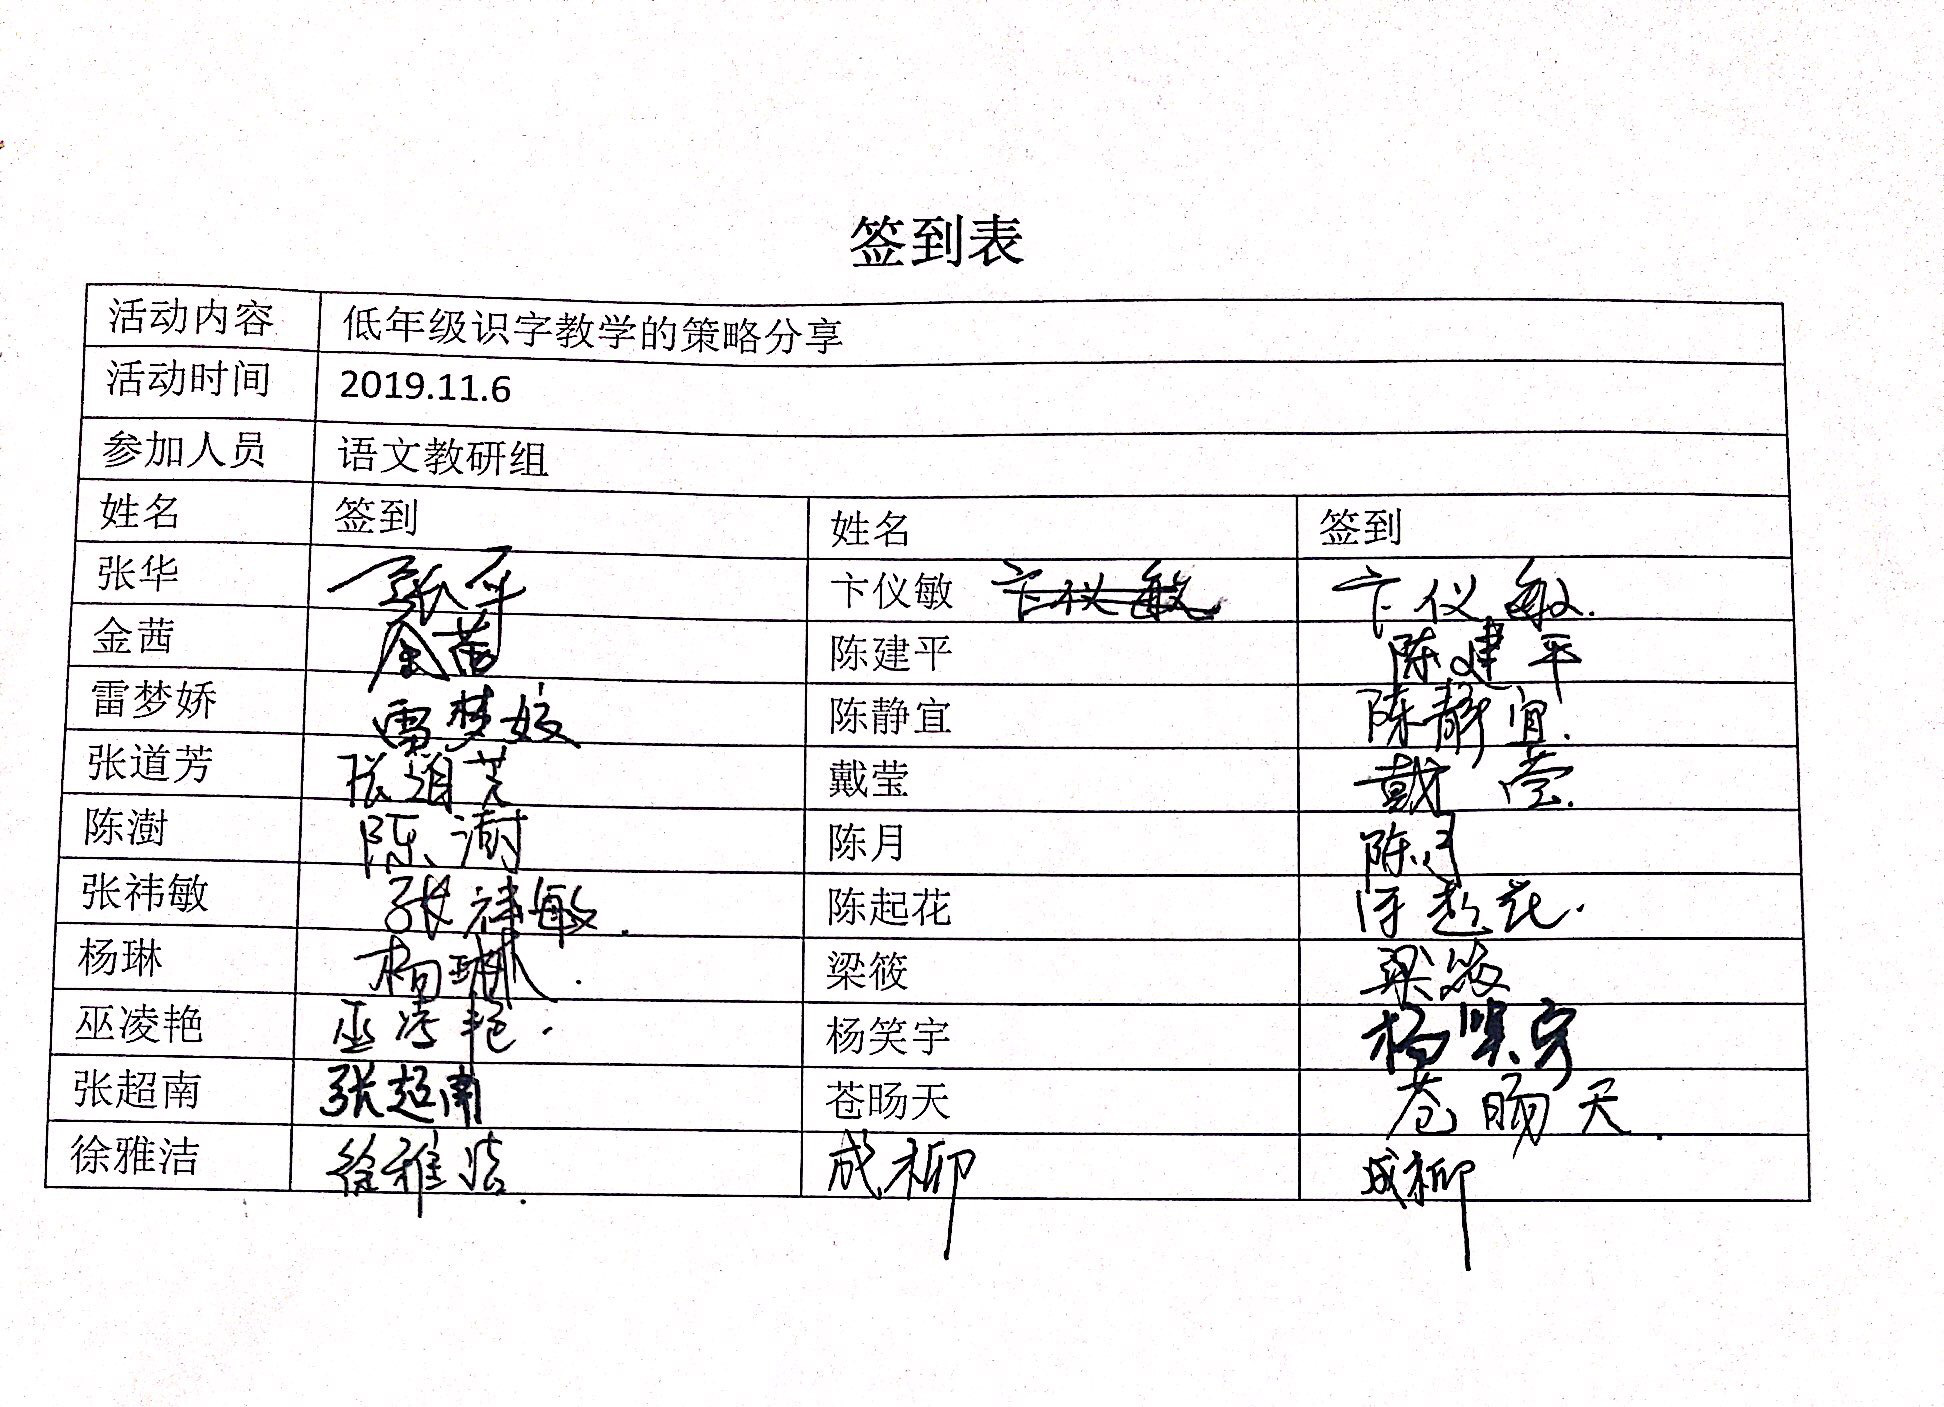 签到表
活动内容 低年级识字教学的策略分享
活动时间 2019.11.6
参加人员 语文教研组
姓名 签到 姓名 签到
张华 张华 卞仪敏 卞仪敏 卞仪敏.
金茜 金茜 陈建平 陈建平
雷梦娇 雷梦娇 陈静宜 陈静宜.
张道芳 张道芳 戴莹 戴莹.
陈澍 陈澍 陈月 陈月
张祎敏 张祎敏. 陈起花 陈起花.
杨琳 杨琳. 梁筱 梁筱
巫凌艳 巫凌艳. 杨笑宇 杨笑宇
张超南 张超南 苍旸天 苍旸天.
徐雅洁 徐雅洁. 成柳 成柳